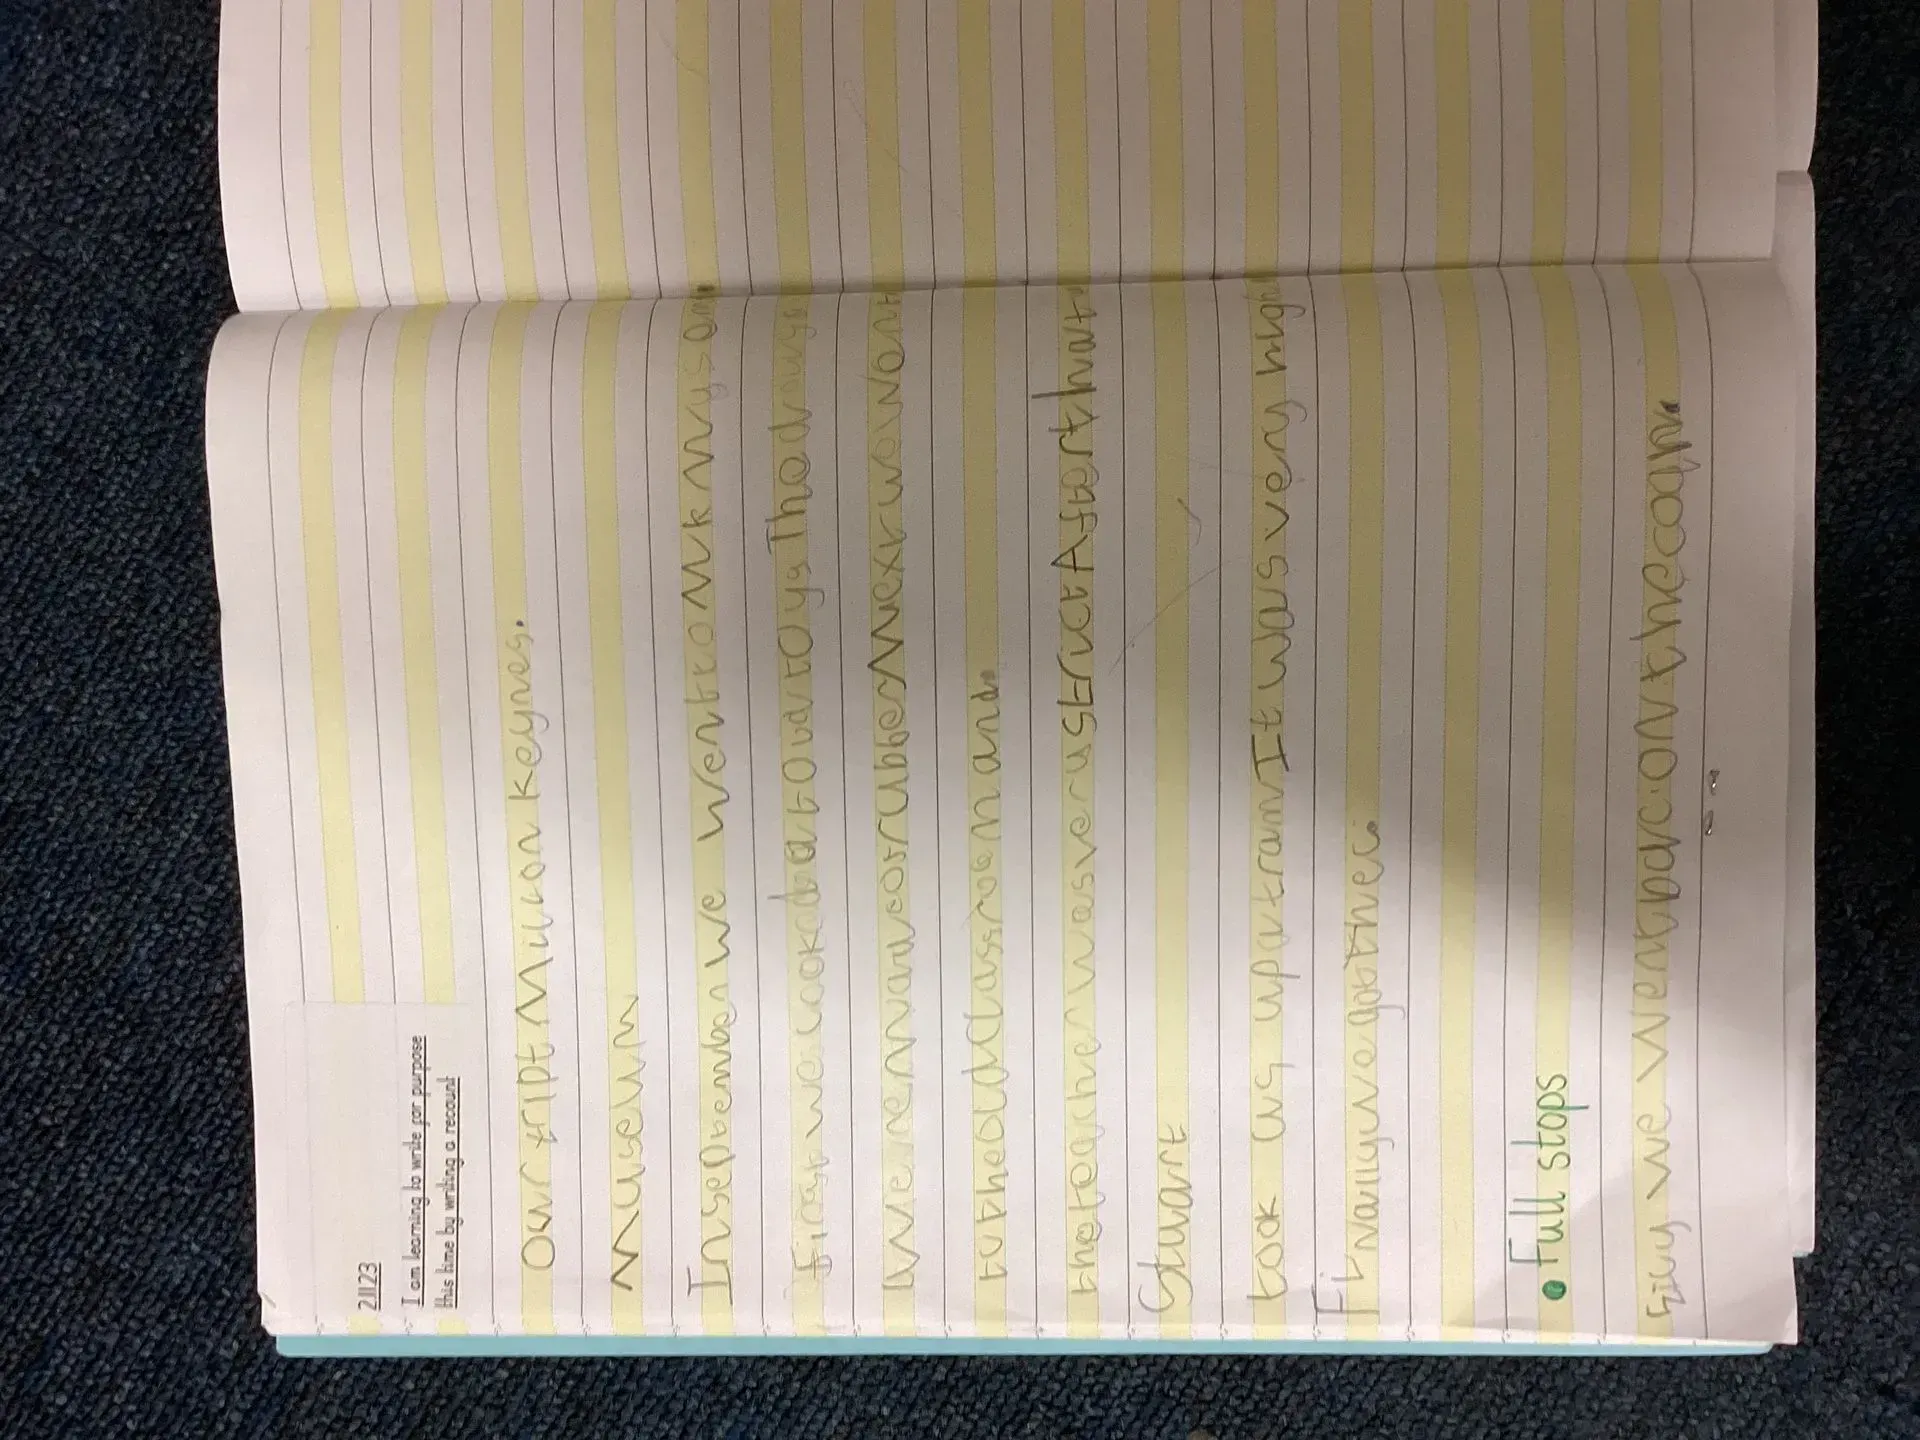 2.11.23
I am learning to write for purpose
this time by writing a recount
Our tript Milton Keynes.
Museum
In September we went to Mk Mys
first we lookd at ould toys The
were rubber Next we went
to the old classroom and.
the teacher was very strict After that
Stuart
took us up a tram It was very high
Finally we got the
• Full stops
we went bac on the coqh.